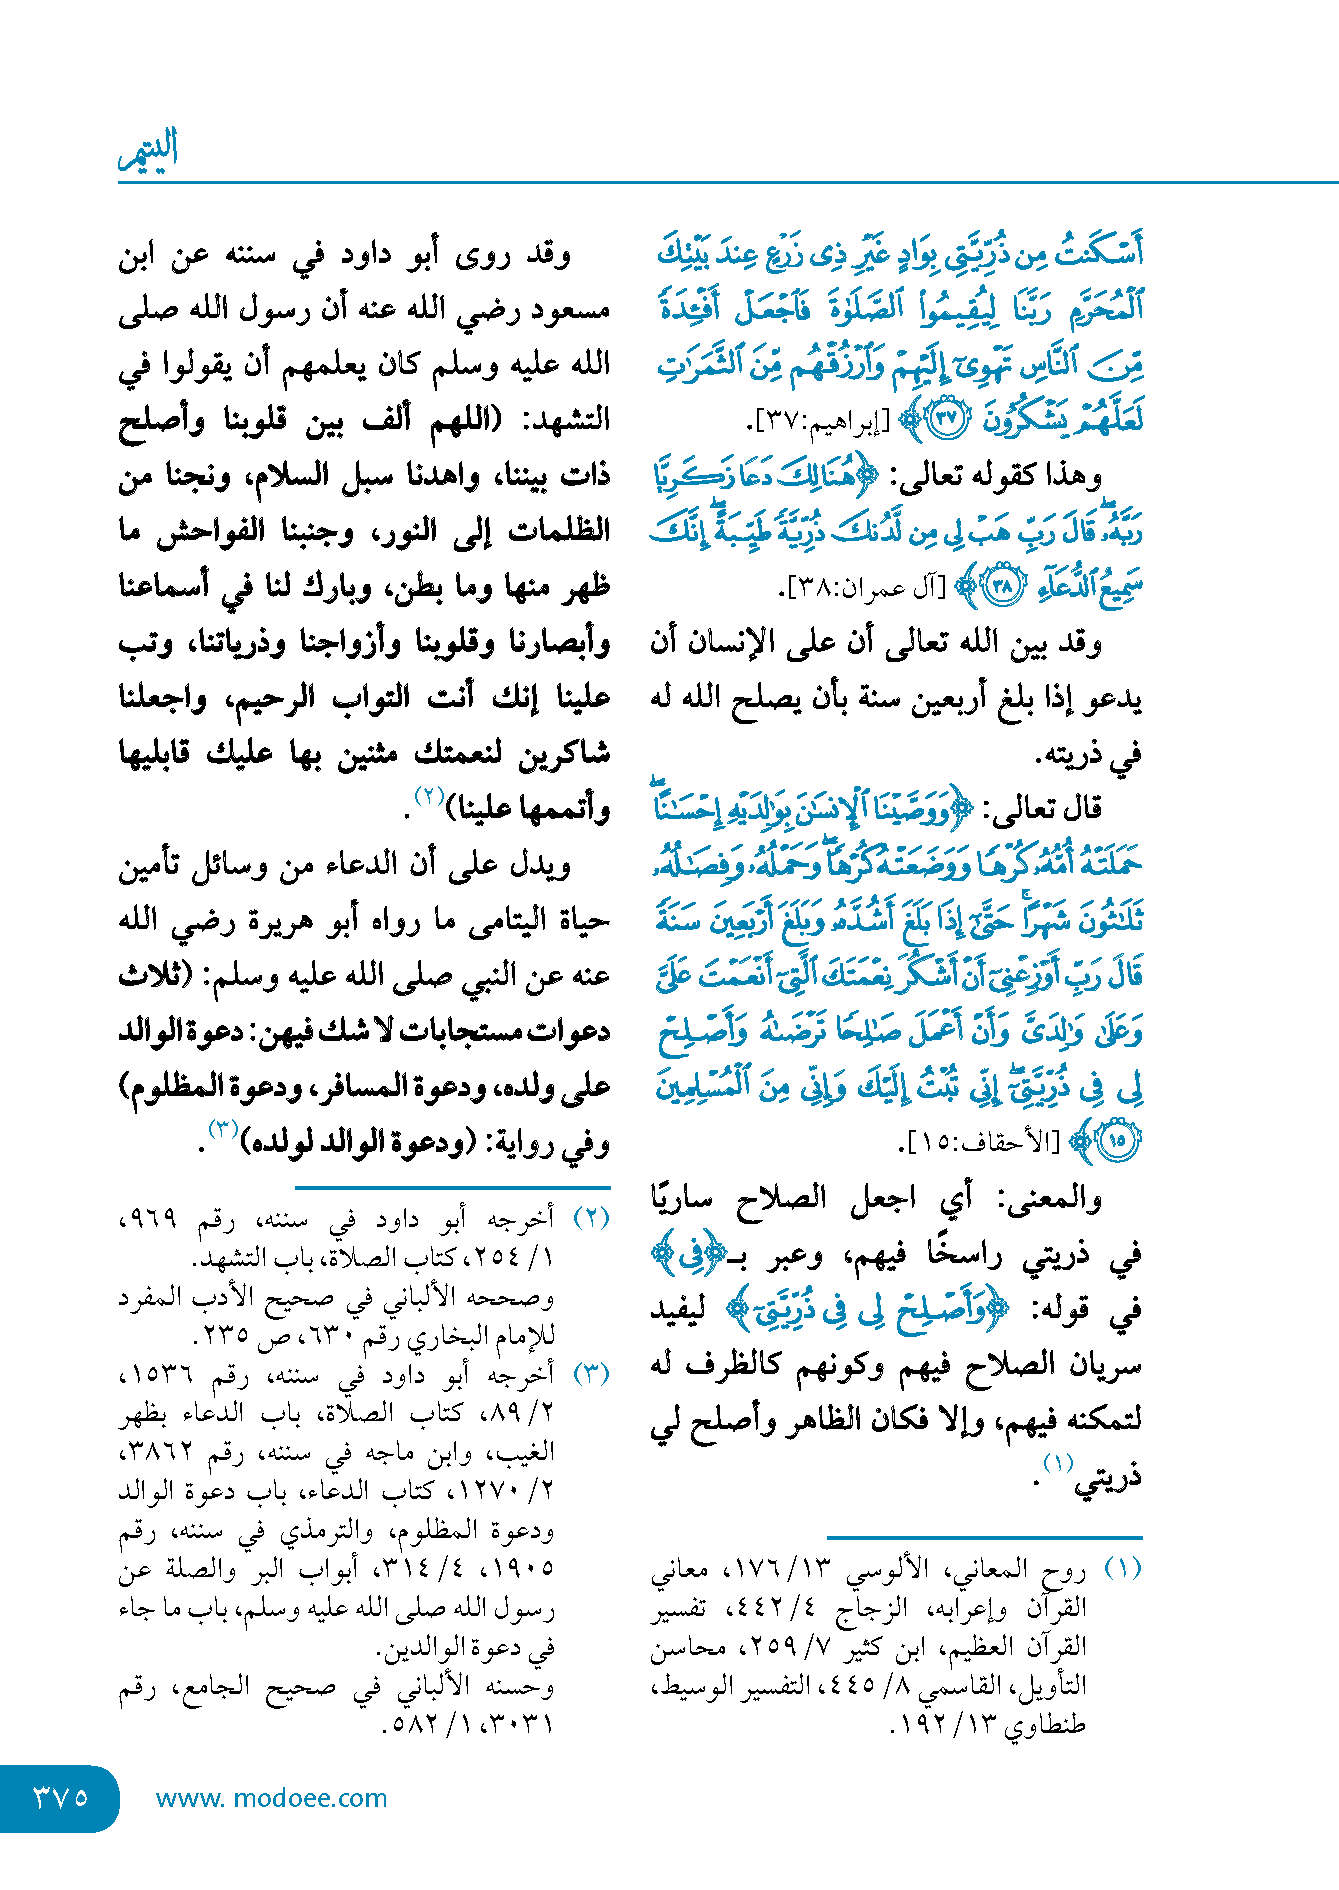 اليتيم
أَسْكَنتُ مِن ذُرِّيَّتِي بِوَادٍ غَيْرِ ذِي زَرْعٍ عِندَ بَيْتِكَ
ٱلْمُحَرَّمِ رَبَّنَا لِيُقِيمُوا۟ ٱلصَّلَوٰةَ فَٱجْعَلْ أَفْـِٔدَةً
مِّنَ ٱلنَّاسِ تَهْوِىٓ إِلَيْهِمْ وَٱرْزُقْهُم مِّنَ ٱلثَّمَرَٰتِ
لَعَلَّهُمْ يَشْكُرُونَ ٣٧﴾ [إبراهيم:٣٧].
وهذا كقوله تعالى: ﴿هُنَالِكَ دَعَا زَكَرِيَّا
رَبَّهُۥ ۖ قَالَ رَبِّ هَبْ لِى مِن لَّدُنكَ ذُرِّيَّةً طَيِّبَةً ۖ إِنَّكَ
سَمِيعُ ٱلدُّعَآءِ ٣٨﴾ [آل عمران:٣٨].
وقد بين الله تعالى أن على الإنسان أن
يدعو إذا بلغ أربعين سنة بأن يصلح الله له
في ذريته.
قال تعالى: ﴿وَوَصَّيْنَا ٱلْإِنسَـٰنَ بِوَٰلِدَيْهِ إِحْسَـٰنًا ۖ
حَمَلَتْهُ أُمُّهُۥ كُرْهًا وَوَضَعَتْهُ كُرْهًا ۖ وَحَمْلُهُۥ وَفِصَـٰلُهُۥ
ثَلَـٰثُونَ شَهْرًا ۚ حَتَّىٰٓ إِذَا بَلَغَ أَشُدَّهُۥ وَبَلَغَ أَرْبَعِينَ سَنَةً
قَالَ رَبِّ أَوْزِعْنِىٓ أَنْ أَشْكُرَ نِعْمَتَكَ ٱلَّتِىٓ أَنْعَمْتَ عَلَىَّ
وَعَلَىٰ وَٰلِدَىَّ وَأَنْ أَعْمَلَ صَـٰلِحًا تَرْضَىٰهُ وَأَصْلِحْ
لِى فِى ذُرِّيَّتِىٓ ۖ إِنِّى تُبْتُ إِلَيْكَ وَإِنِّى مِنَ ٱلْمُسْلِمِينَ
١٥﴾ [الأحقاف:١٥].
والمعنى: أي اجعل الصلاح ساريًا
في ذريتي راسخًا فيهم، وعبر بـ﴿فِى﴾
في قوله: ﴿وَأَصْلِحْ لِى فِى ذُرِّيَّتِىٓ﴾ ليفيد
سريان الصلاح فيهم وكونهم كالظرف له
لتمكنه فيهم، وإلا فكان الظاهر وأصلح لي
ذريتي(١).
(١) روح المعاني، الألوسي ١٣/ ١٧٦، معاني
القرآن وإعرابه، الزجاج ٤/ ٤٤٢، تفسير
القرآن العظيم، ابن كثير ٧/ ٢٥٩، محاسن
التأويل، القاسمي ٨/ ٤٤٥، التفسير الوسيط،
طنطاوي ١٣/ ١٩٢.
وقد روى أبو داود في سننه عن ابن
مسعود رضي الله عنه أن رسول الله صلى
الله عليه وسلم كان يعلمهم أن يقولوا في
التشهد: (اللهم ألف بين قلوبنا وأصلح
ذات بيننا، واهدنا سبل السلام، ونجنا من
الظلمات إلى النور، وجنبنا الفواحش ما
ظهر منها وما بطن، وبارك لنا في أسماعنا
وأبصارنا وقلوبنا وأزواجنا وذرياتنا، وتب
علينا إنك أنت التواب الرحيم، واجعلنا
شاكرين لنعمتك مثنين بها عليك قابليها
وأتممها علينا)(٢).
ويدل على أن الدعاء من وسائل تأمين
حياة اليتامى ما رواه أبو هريرة رضي الله
عنه عن النبي صلى الله عليه وسلم: (ثلاث
دعوات مستجابات لا شك فيهن: دعوة الوالد
على ولده، ودعوة المسافر، ودعوة المظلوم)
وفي رواية: (ودعوة الوالد لولده)(٣).
(٢) أخرجه أبو داود في سننه، رقم ٩٦٩،
١/ ٢٥٤، كتاب الصلاة، باب التشهد.
وصححه الألباني في صحيح الأدب المفرد
للإمام البخاري رقم ٦٣٠، ص ٢٣٥.
(٣) أخرجه أبو داود في سننه، رقم ١٥٣٦،
٢/ ٨٩، كتاب الصلاة، باب الدعاء بظهر
الغيب، وابن ماجه في سننه، رقم ٣٨٦٢،
٢/ ١٢٧٠، كتاب الدعاء، باب دعوة الوالد
ودعوة المظلوم، والترمذي في سننه، رقم
١٩٠٥، ٤/ ٣١٤، أبواب البر والصلة عن
رسول الله صلى الله عليه وسلم، باب ما جاء
في دعوة الوالدين.
وحسنه الألباني في صحيح الجامع، رقم
٣٠٣١، ١/ ٥٨٢.
www. modoee.com
٣٧٥